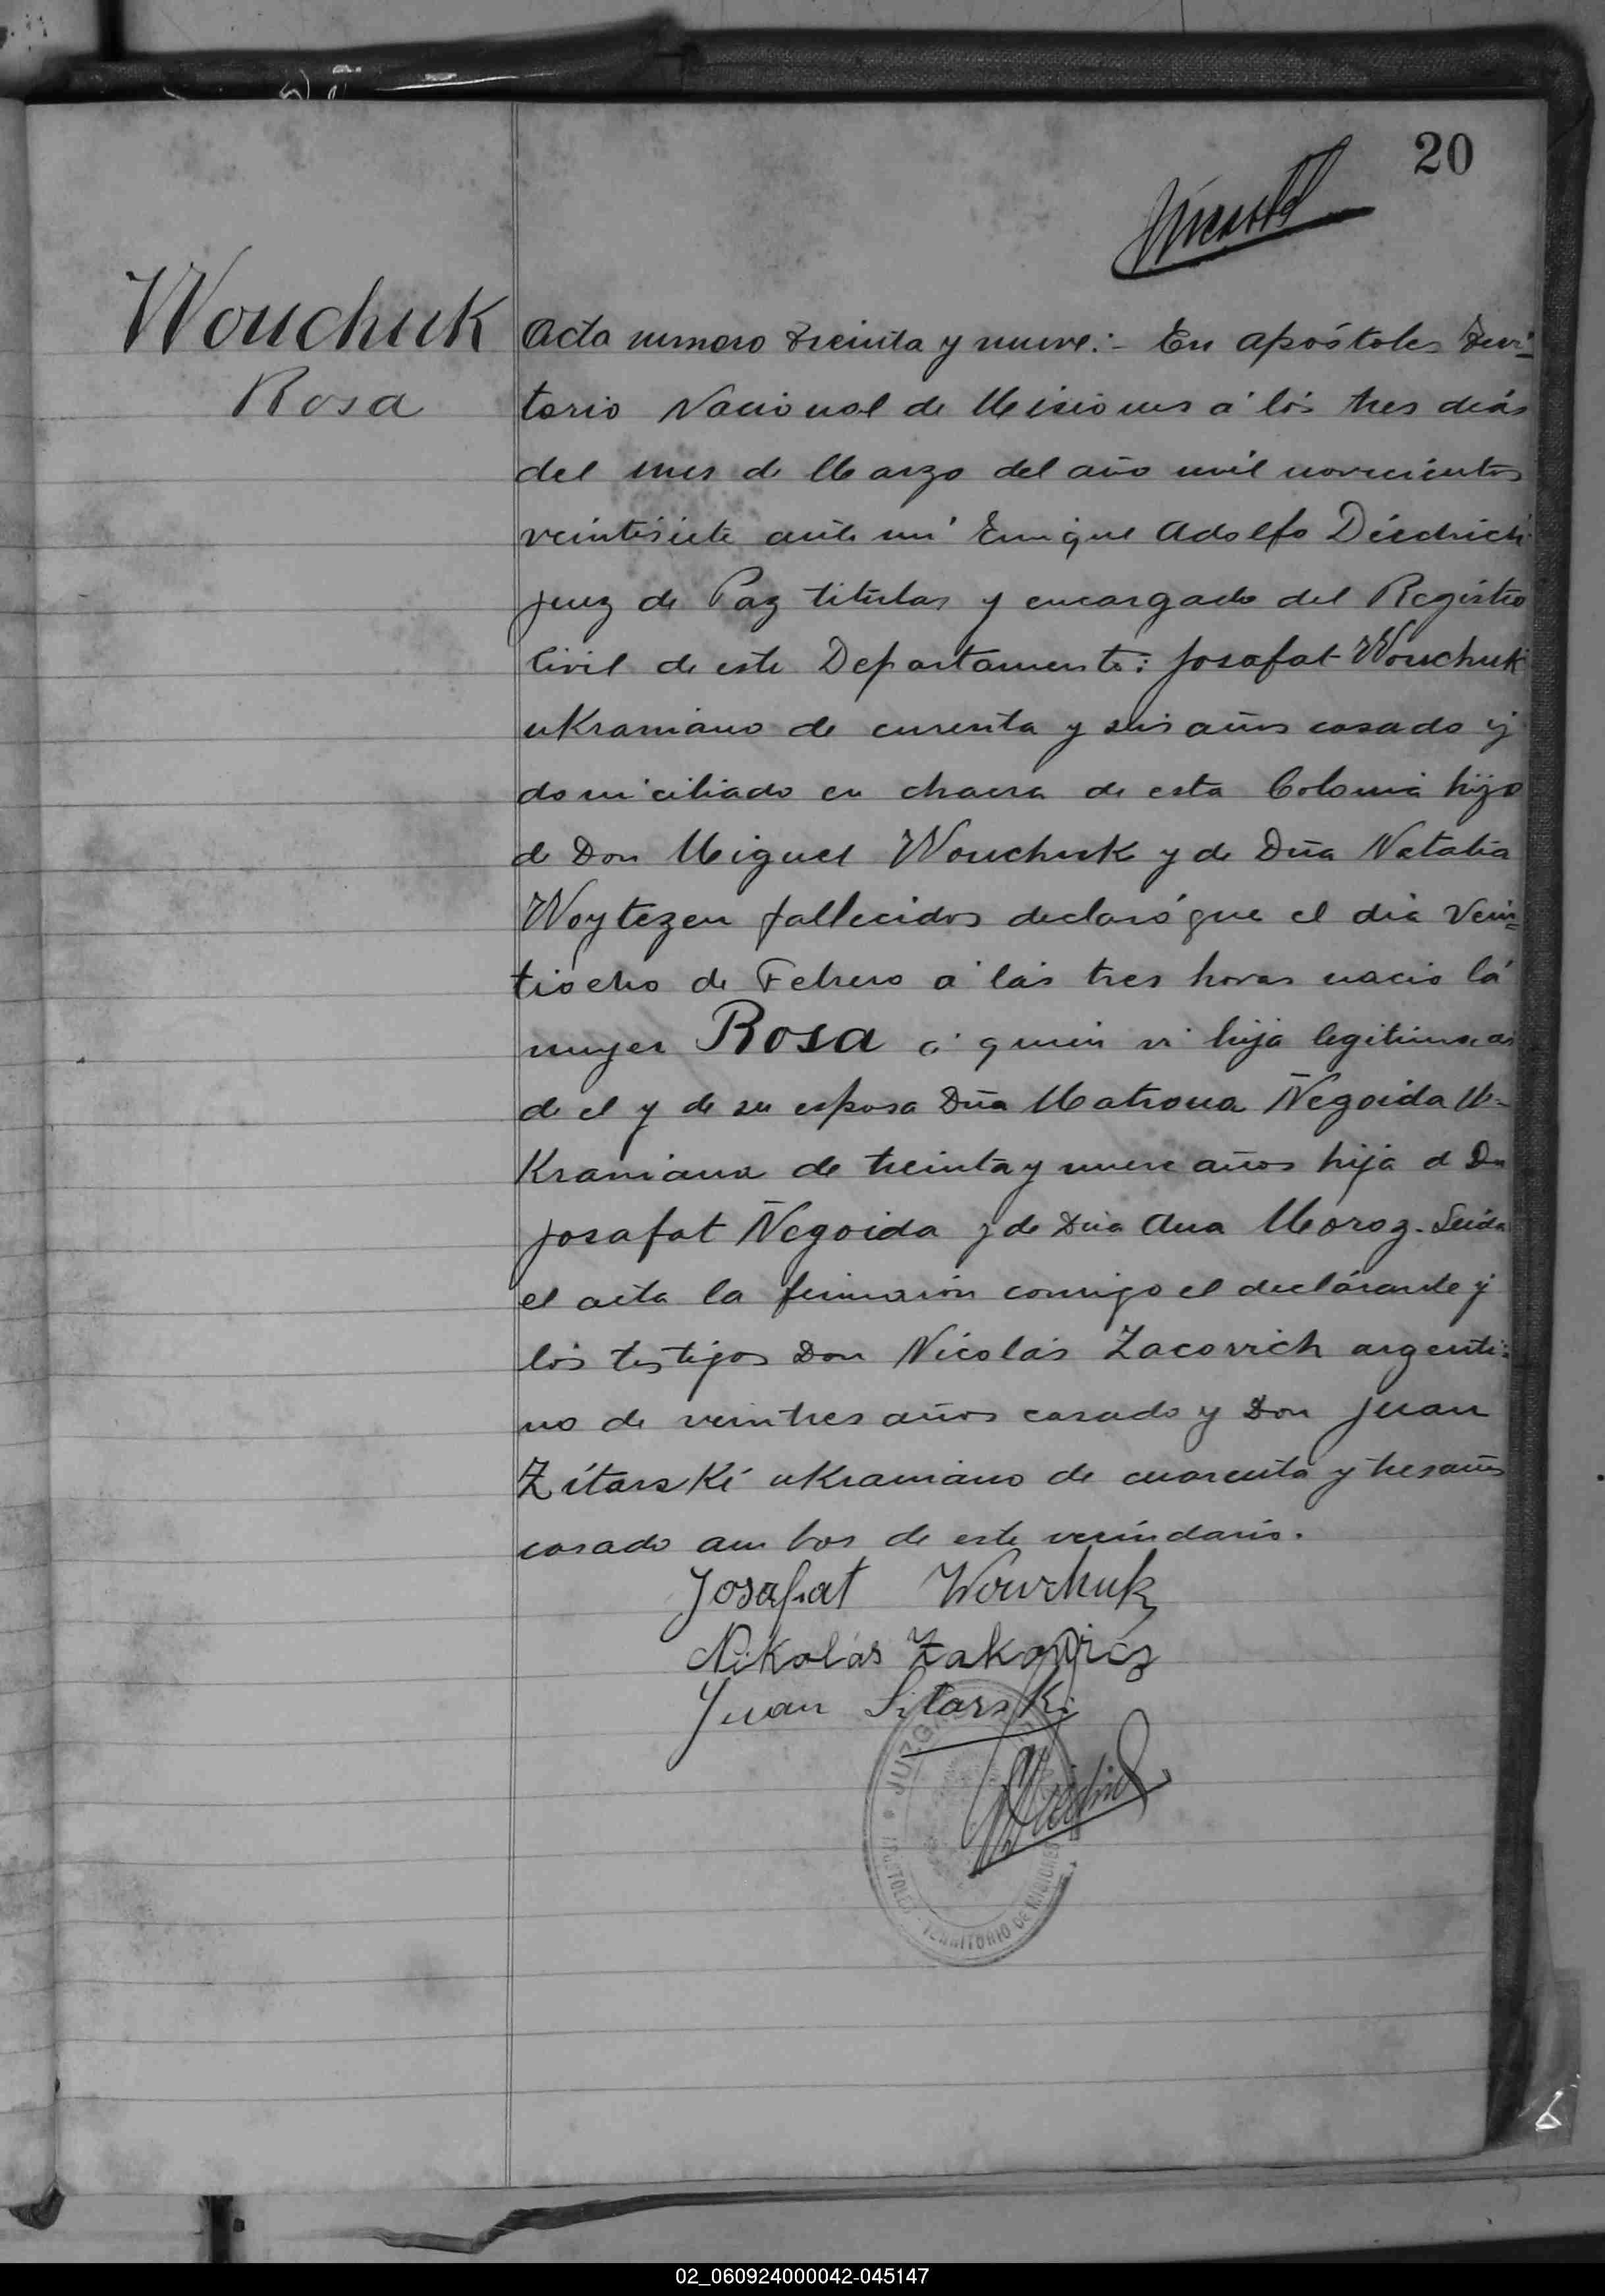 20
Wouchuk
Rosa
Acta numero treinta y nueve:- En apóstoles Terri-
torio Nacional de Misiones á los tres dias
del mes de Marzo del año mil novecientos
veintisiete ante mi Enrique Adolfo Diedrich
juez de Paz titular y encargado del Registro
Civil de este Departamento: Josafat Wouchuk
ukraniano de curenta y seis años casado y
domiciliado en chacra de esta Colonia hijo
de Don Miguel Wouchuk y de Dña Natalia
Woytezen fallecidos declaró que el dia Vein=
tiocho de Febrero a las tres horas nacio la
mujer Rosa á quien vi hija legitima
de el y de su esposa Dña Matrona Ñegoida U-
Kraniana de treinta y nueve años hija d Dn
Josafat Ñegoida y de Dña Ana Moroz. Leida
el acta la firmaron conmigo el declarante y
los testigos Don Nicolás Zacovich argenti-
no de veintres años casado y Don Juan
Zitarski ukraniano de cuarenta y tres años
casado ambos de este vecindario.
Josafat Wouchuk
Nikolás Zakovicz
Juan Sitarski
JUZGA
APOSTOLES - TERRITORIO DE MISIONES
02_060924000042-045147